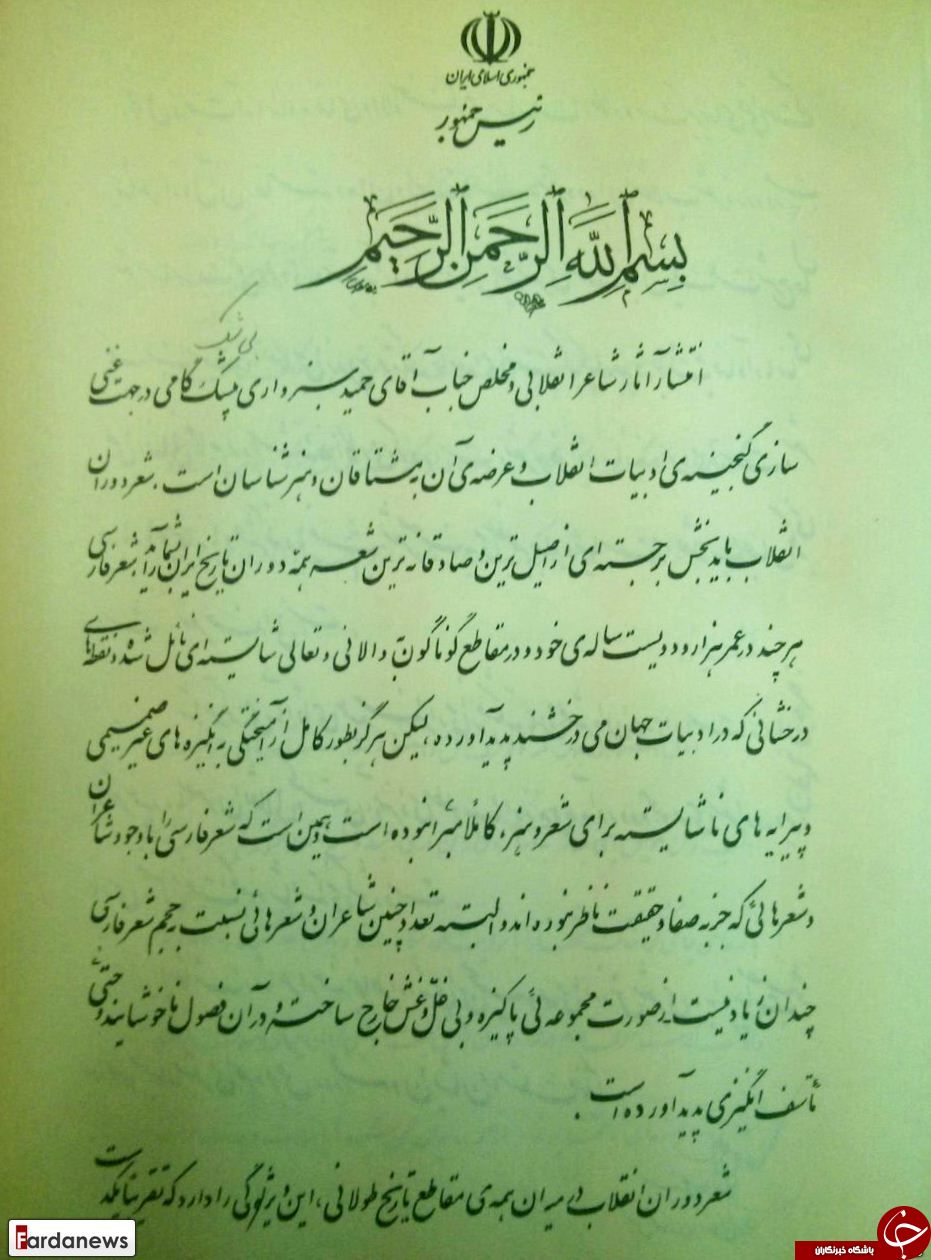 جمهوری اسلامی ایران
رئیس جمهور
بِسْمِ اللَّهِ الرَّحْمنِ الرَّحِيمِ
بی شک
انتشار آثار شاعر انقلابی و مخلص جناب آقای حمید سبزواری بیشک گامی در جهت غنی
سازی گنجینه‌ی ادبیات انقلاب و عرضه‌ی آن به مشتاقان و هنرشناسان است. شعر دوران
انقلاب باید بخش برجسته ای از اصیل ترین و صادقانه ترین شعر همه دوران تاریخ ایران بشمار آید. شعر فارسی
هر چند در عمر هزار و دویست ساله‌ی خود و در مقاطع گوناگون به والائی و تعالی شایسته ای نائل شده و نقطه‌های
درخشانی که در ادبیات جهان می درخشند پدید آورده، لیکن هرگز بطور کامل از آمیختگی به انگیزه های غیر صمیمی
و پیرایه های ناشایسته برای شعر و هنر، کاملاً مبرّا نبوده است و همین است که شعر فارسی را با وجود شاعران
و شعرهائی که جز به صفا و حقیقت ناظر نبوده اند و البته تعداد چنین شاعران و شعرهائی نسبت به حجم شعر فارسی
چندان زیاد نیست از صورت مجموعه ئی پاکیزه و بی غلّ و غش خارج ساخته و در آن فصول ناخوشایند و حتّی
تأسف انگیزی پدید آورده است.
شعر دوران انقلاب در میان همه‌ی مقاطع تاریخ طولانی، این ویژگی را دارد که تقریبا یکدست
Fardanews
باشگاه خبرنگاران